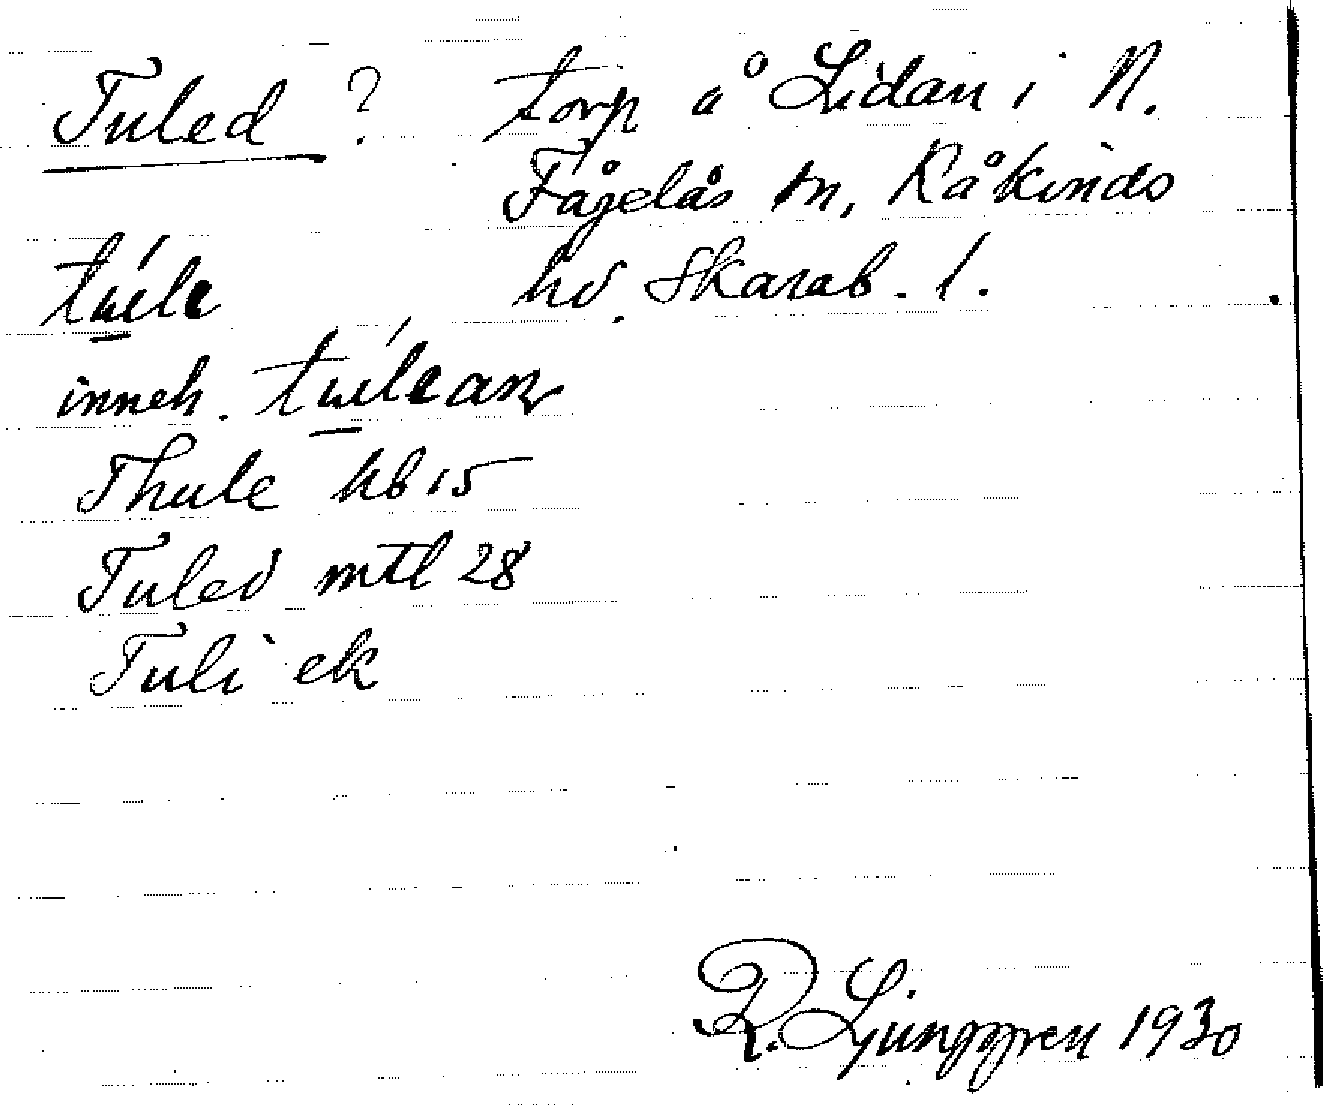 Tuled ? torp å Lidan i N.
Fågelås sn, Kåkinds
túle hd. Skarab. l.
inneh. túlear
Thule hb 15
Tuled mtl 28
Tuli ek
R. Ljunggren 1930